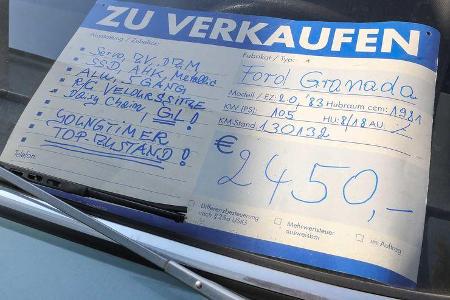 ZU VERKAUFEN
Ausstattung / Zubehör:
Servo, ZV, DZM
SSD, AHK, Metallic
ALU, 5 GANG
R/C VELOURSSITZE
Daisy Chain, GL!
YOUNGTIMER
TOP-ZUSTAND!
Telefon:
Fabrikat / Typ:
Ford Granada
Modell / EZ: 2.0, '83 Hubraum ccm: 1981
KW (PS): 105 HU: 8/18 AU
KM-Stand 130132
€ 2450,-
Differenzbesteuerung nach §25a UStG
Mehrwertsteuer ausweisbar
im Auftrag